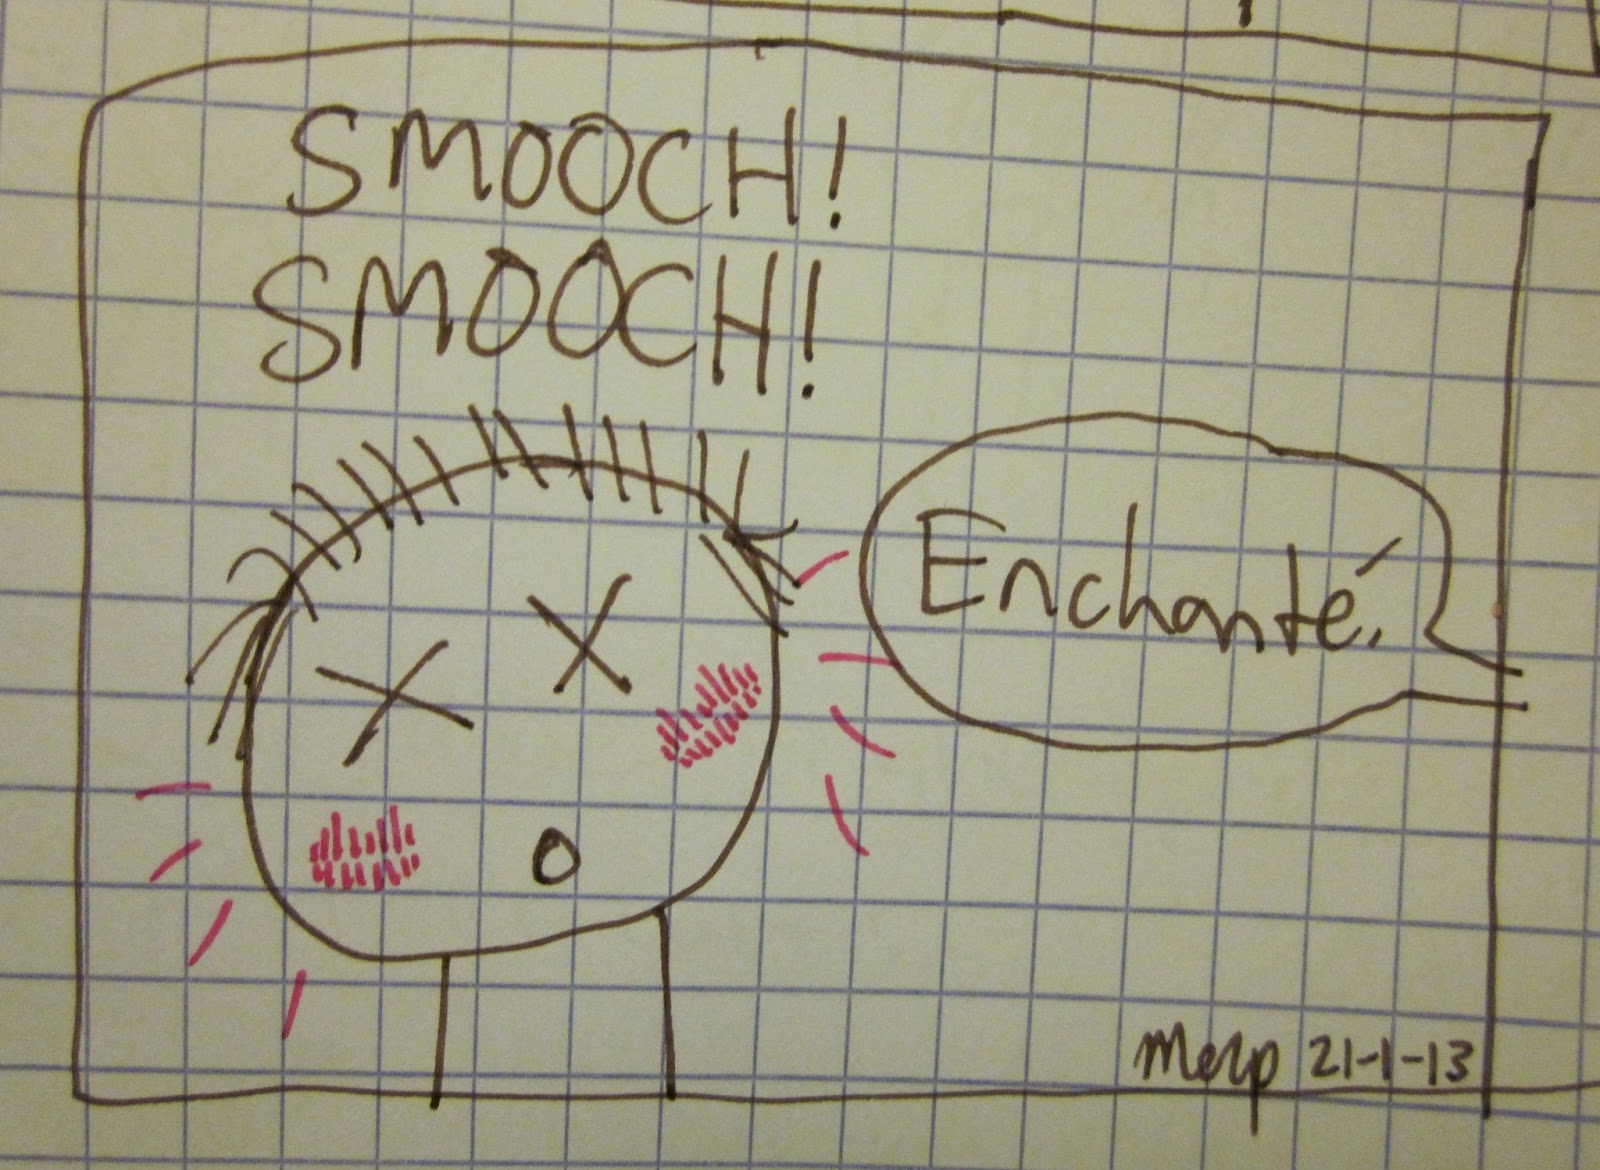 SMOOCH!
SMOOCH!
Enchanté.
Merp 21-1-13